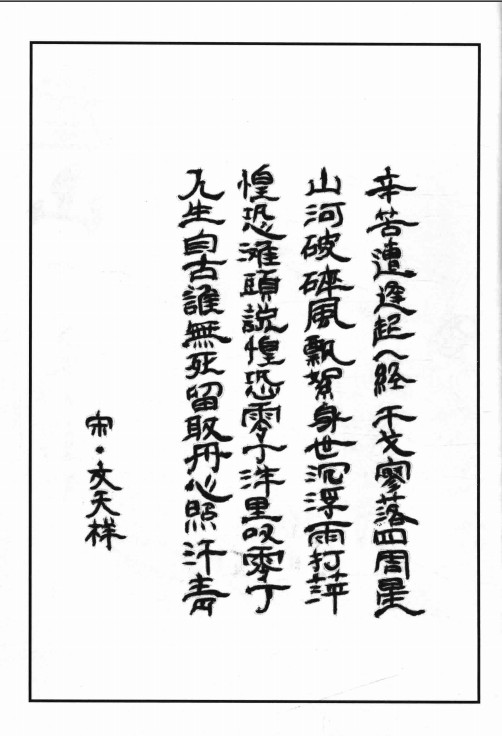 辛苦遭逢起一经干戈寥落四周星
山河破碎風飄絮身世沉浮雨打萍
惶恐滩頭説惶恐零丁洋里叹零丁
人生自古誰無死留取丹心照汗青
宋·文天祥